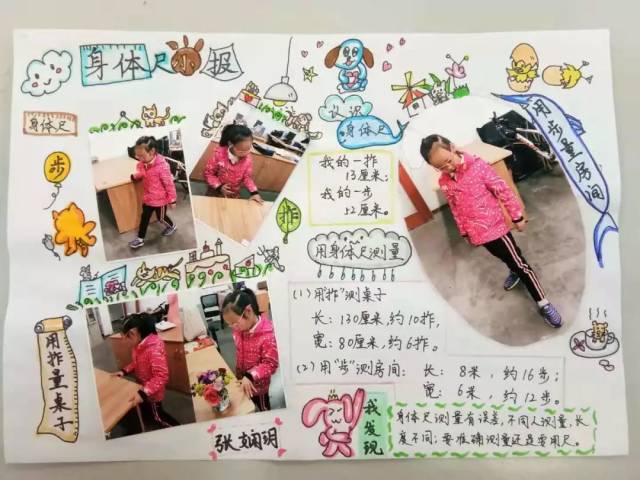 身体尺小报
身体尺
步
拃
认识
身体尺
我的一拃
13厘米;
我的一步
52厘米。
用步量房间
用身体尺测量
(1)用“拃”测桌子
长:130厘米,约10拃,
宽:80厘米,约6拃。
(2)用“步”测房间:长:8米,约16步;
宽:6米,约12步。
用拃量桌子
我发现
身体尺测量有误差,不同人测量,长
度不同;要准确测量还是要用尺。